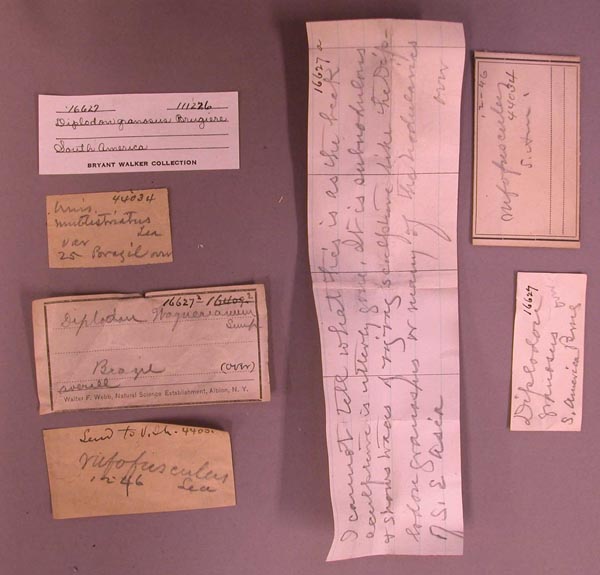 16627 111226
Diplodon granosus Brugiere
South America
BRYANT WALKER COLLECTION
44034
Unio
multistriatus
Lea
var
25 Brazil over
16627a 16409.2
Diplodon Wagnerianum
Simp
Brazil
(over)
Walter F. Webb, Natural Science Establishment, Albion, N. Y.
Send to V. Sh. 4403
rufofusculus
12-46 Lea
16627 a
I cannot tell what this is as the beak
sculpture is utterly gone. It is subnodulous
& shows traces of zigzag sculpture like the Dip-
lodon granosus or many of the nodularias
of S. E. Asia over
12-46
44034
rufofusculus
S. Am.
16627
Diplodon
granosus
S. America Brug